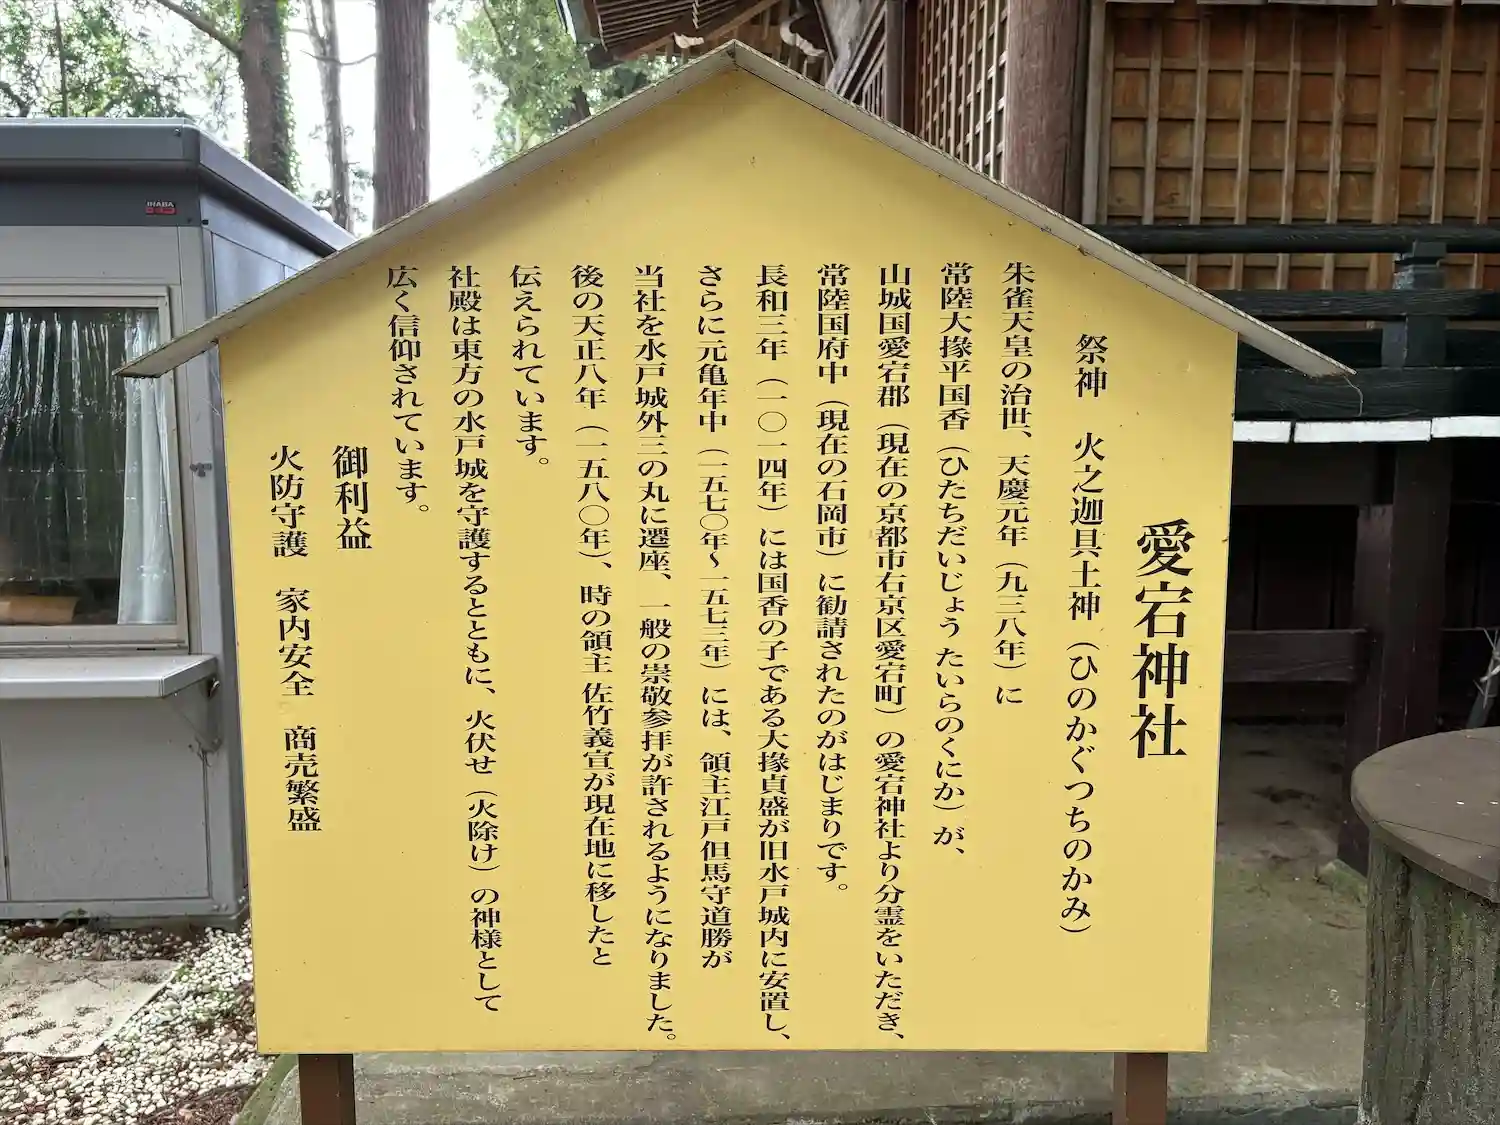 愛宕神社
祭神　火之迦具土神（ひのかぐつちのかみ）
朱雀天皇の治世、天慶元年（九三八年）に
常陸大掾平国香（ひたちだいじょう たいらのくにか）が、
山城国愛宕郡（現在の京都市右京区愛宕町）の愛宕神社より分霊をいただき、
常陸国府中（現在の石岡市）に勧請されたのがはじまりです。
長和三年（一〇一四年）には国香の子である大掾貞盛が旧水戸城内に安置し、
さらに元亀年中（一五七〇年〜一五七三年）には、領主江戸但馬守道勝が
当社を水戸城外三の丸に遷座、一般の崇敬参拝が許されるようになりました。
後の天正八年（一五八〇年）、時の領主 佐竹義宣が現在地に移したと
伝えられています。
社殿は東方の水戸城を守護するとともに、火伏せ（火除け）の神様として
広く信仰されています。
御利益
火防守護　家内安全　商売繁盛
INABA